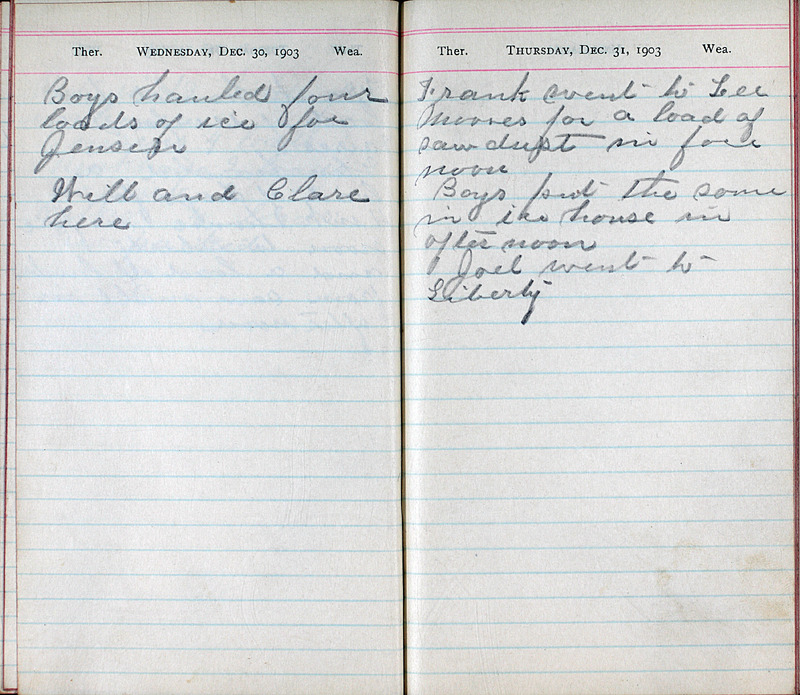 Ther. WEDNESDAY, DEC. 30, 1903 Wea.
Boys hauled four
loads of ice for
Jensen
Will and Clare
here
Ther. THURSDAY, DEC. 31, 1903 Wea.
Frank went to Lee
Moores for a load of
sawdust in fore
noon
Boys put the some
in ice house in
after noon
Joel went to
Liberty